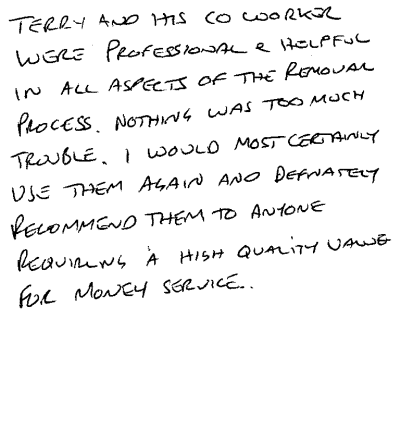 TERRY AND HIS CO WORKER
WERE PROFESSIONAL & HELPFUL
IN ALL ASPECTS OF THE REMOVAL
PROCESS. NOTHING WAS TOO MUCH
TROUBLE. I WOULD MOST CERTAINLY
USE THEM AGAIN AND DEFNATELY
RECOMMEND THEM TO ANYONE
REQUIRING A HIGH QUALITY VALUE
FOR MONEY SERVICE..